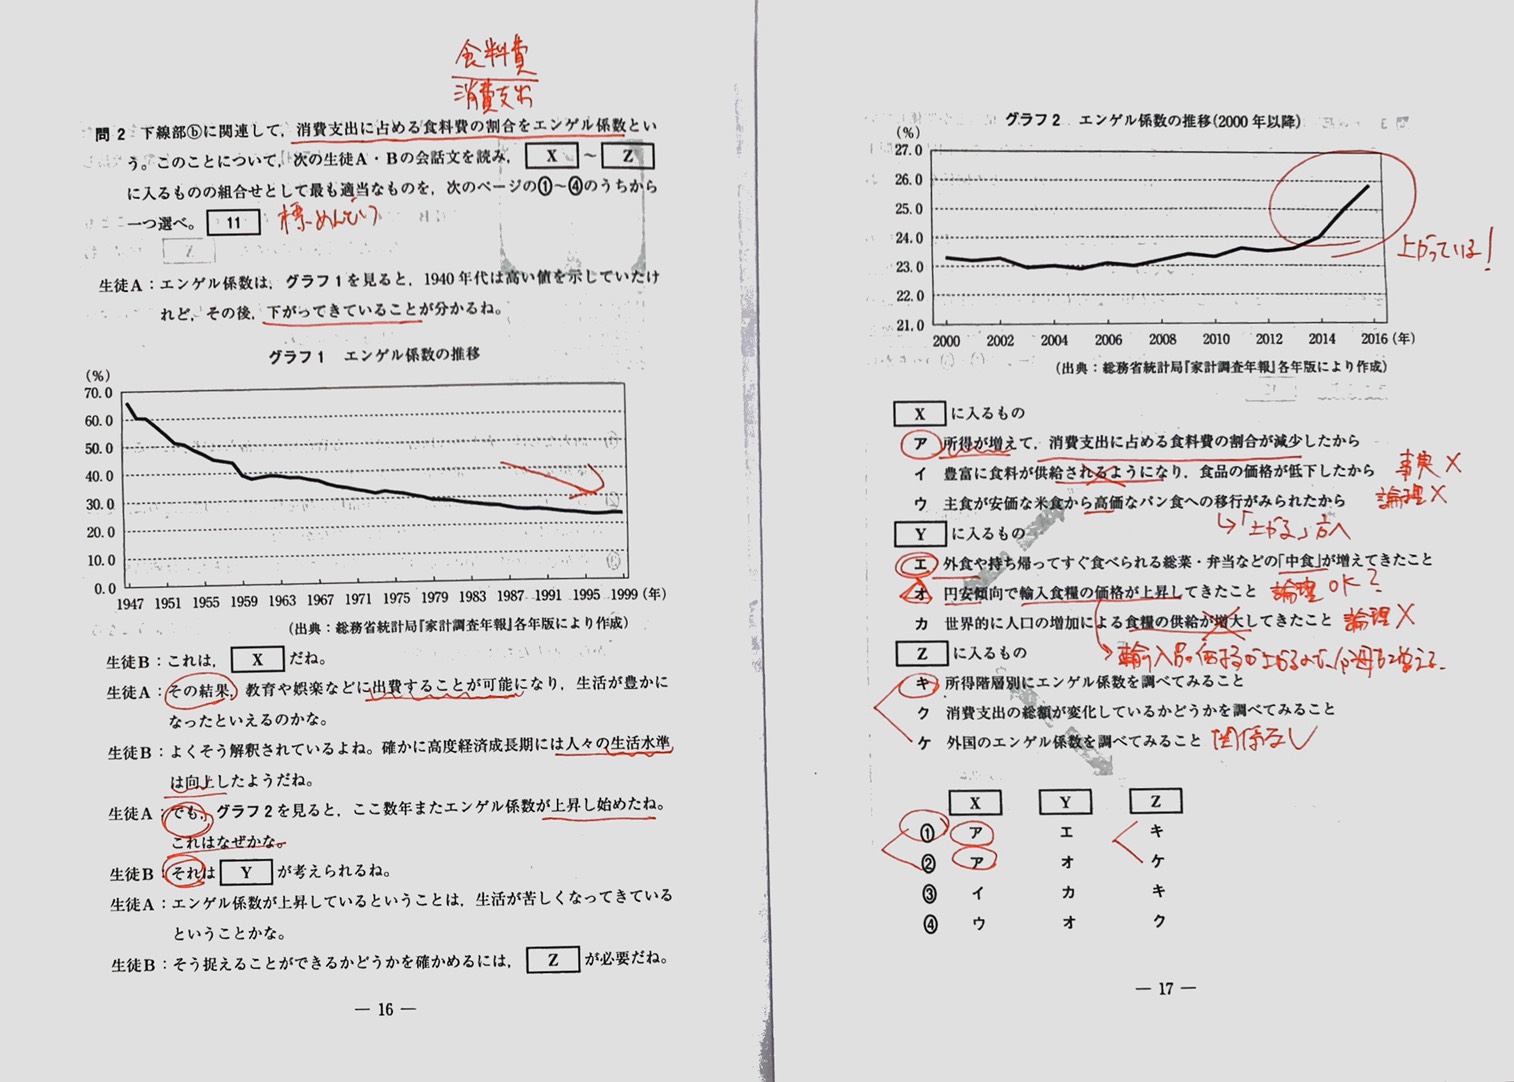 食料費
消費支出
問2 下線部ⓑに関連して，消費支出に占める食料費の割合をエンゲル係数とい
う。このことについて，次の生徒A・Bの会話文を読み， X ～ Z
に入るものの組合せとして最も適当なものを，次のページの①～④のうちから
一つ選べ。 11 標.めんどい
生徒A：エンゲル係数は，グラフ1を見ると，1940年代は高い値を示していたけ
れど，その後，下がってきていることが分かるね。
グラフ1 エンゲル係数の推移
(%)
70.0
60.0
50.0
40.0
30.0
20.0
10.0
0.0
1947 1951 1955 1959 1963 1967 1971 1975 1979 1983 1987 1991 1995 1999 (年)
(出典：総務省統計局『家計調査年報』各年版により作成)
生徒B：これは， X だね。
生徒A：その結果，教育や娯楽などに出費することが可能になり，生活が豊かに
なったといえるのかな。
生徒B：よくそう解釈されているよね。確かに高度経済成長期には人々の生活水準
は向上したようだね。
生徒A：でも，グラフ2を見ると，ここ数年またエンゲル係数が上昇し始めたね。
これはなぜかな。
生徒B：それは Y が考えられるね。
生徒A：エンゲル係数が上昇しているということは，生活が苦しくなってきている
ということかな。
生徒B：そう捉えることができるかどうかを確かめるには， Z が必要だね。
— 16 —
グラフ2 エンゲル係数の推移(2000年以降)
(%)
27.0
26.0
25.0
24.0
23.0
22.0
21.0
上がっている!
2000 2002 2004 2006 2008 2010 2012 2014 2016 (年)
(出典：総務省統計局『家計調査年報』各年版により作成)
X に入るもの
ア 所得が増えて，消費支出に占める食料費の割合が減少したから
イ 豊富に食料が供給されるようになり，食品の価格が低下したから 事実×
ウ 主食が安価な米食から高価なパン食への移行がみられたから 論理×
↳「上がる」方へ
Y に入るもの
エ 外食や持ち帰ってすぐ食べられる総菜・弁当などの「中食」が増えてきたこと
オ 円安傾向で輸入食糧の価格が上昇してきたこと 論理OK?
カ 世界的に人口の増加による食糧の供給が増大してきたこと 論理×
Z に入るもの 輸入品の価格が上がるので、分母も増える.
キ 所得階層別にエンゲル係数を調べてみること
ク 消費支出の総額が変化しているかどうかを調べてみること
ケ 外国のエンゲル係数を調べてみること 関係なし
X Y Z
① ア エ キ
② ア オ ケ
③ イ カ キ
④ ウ オ ク
— 17 —